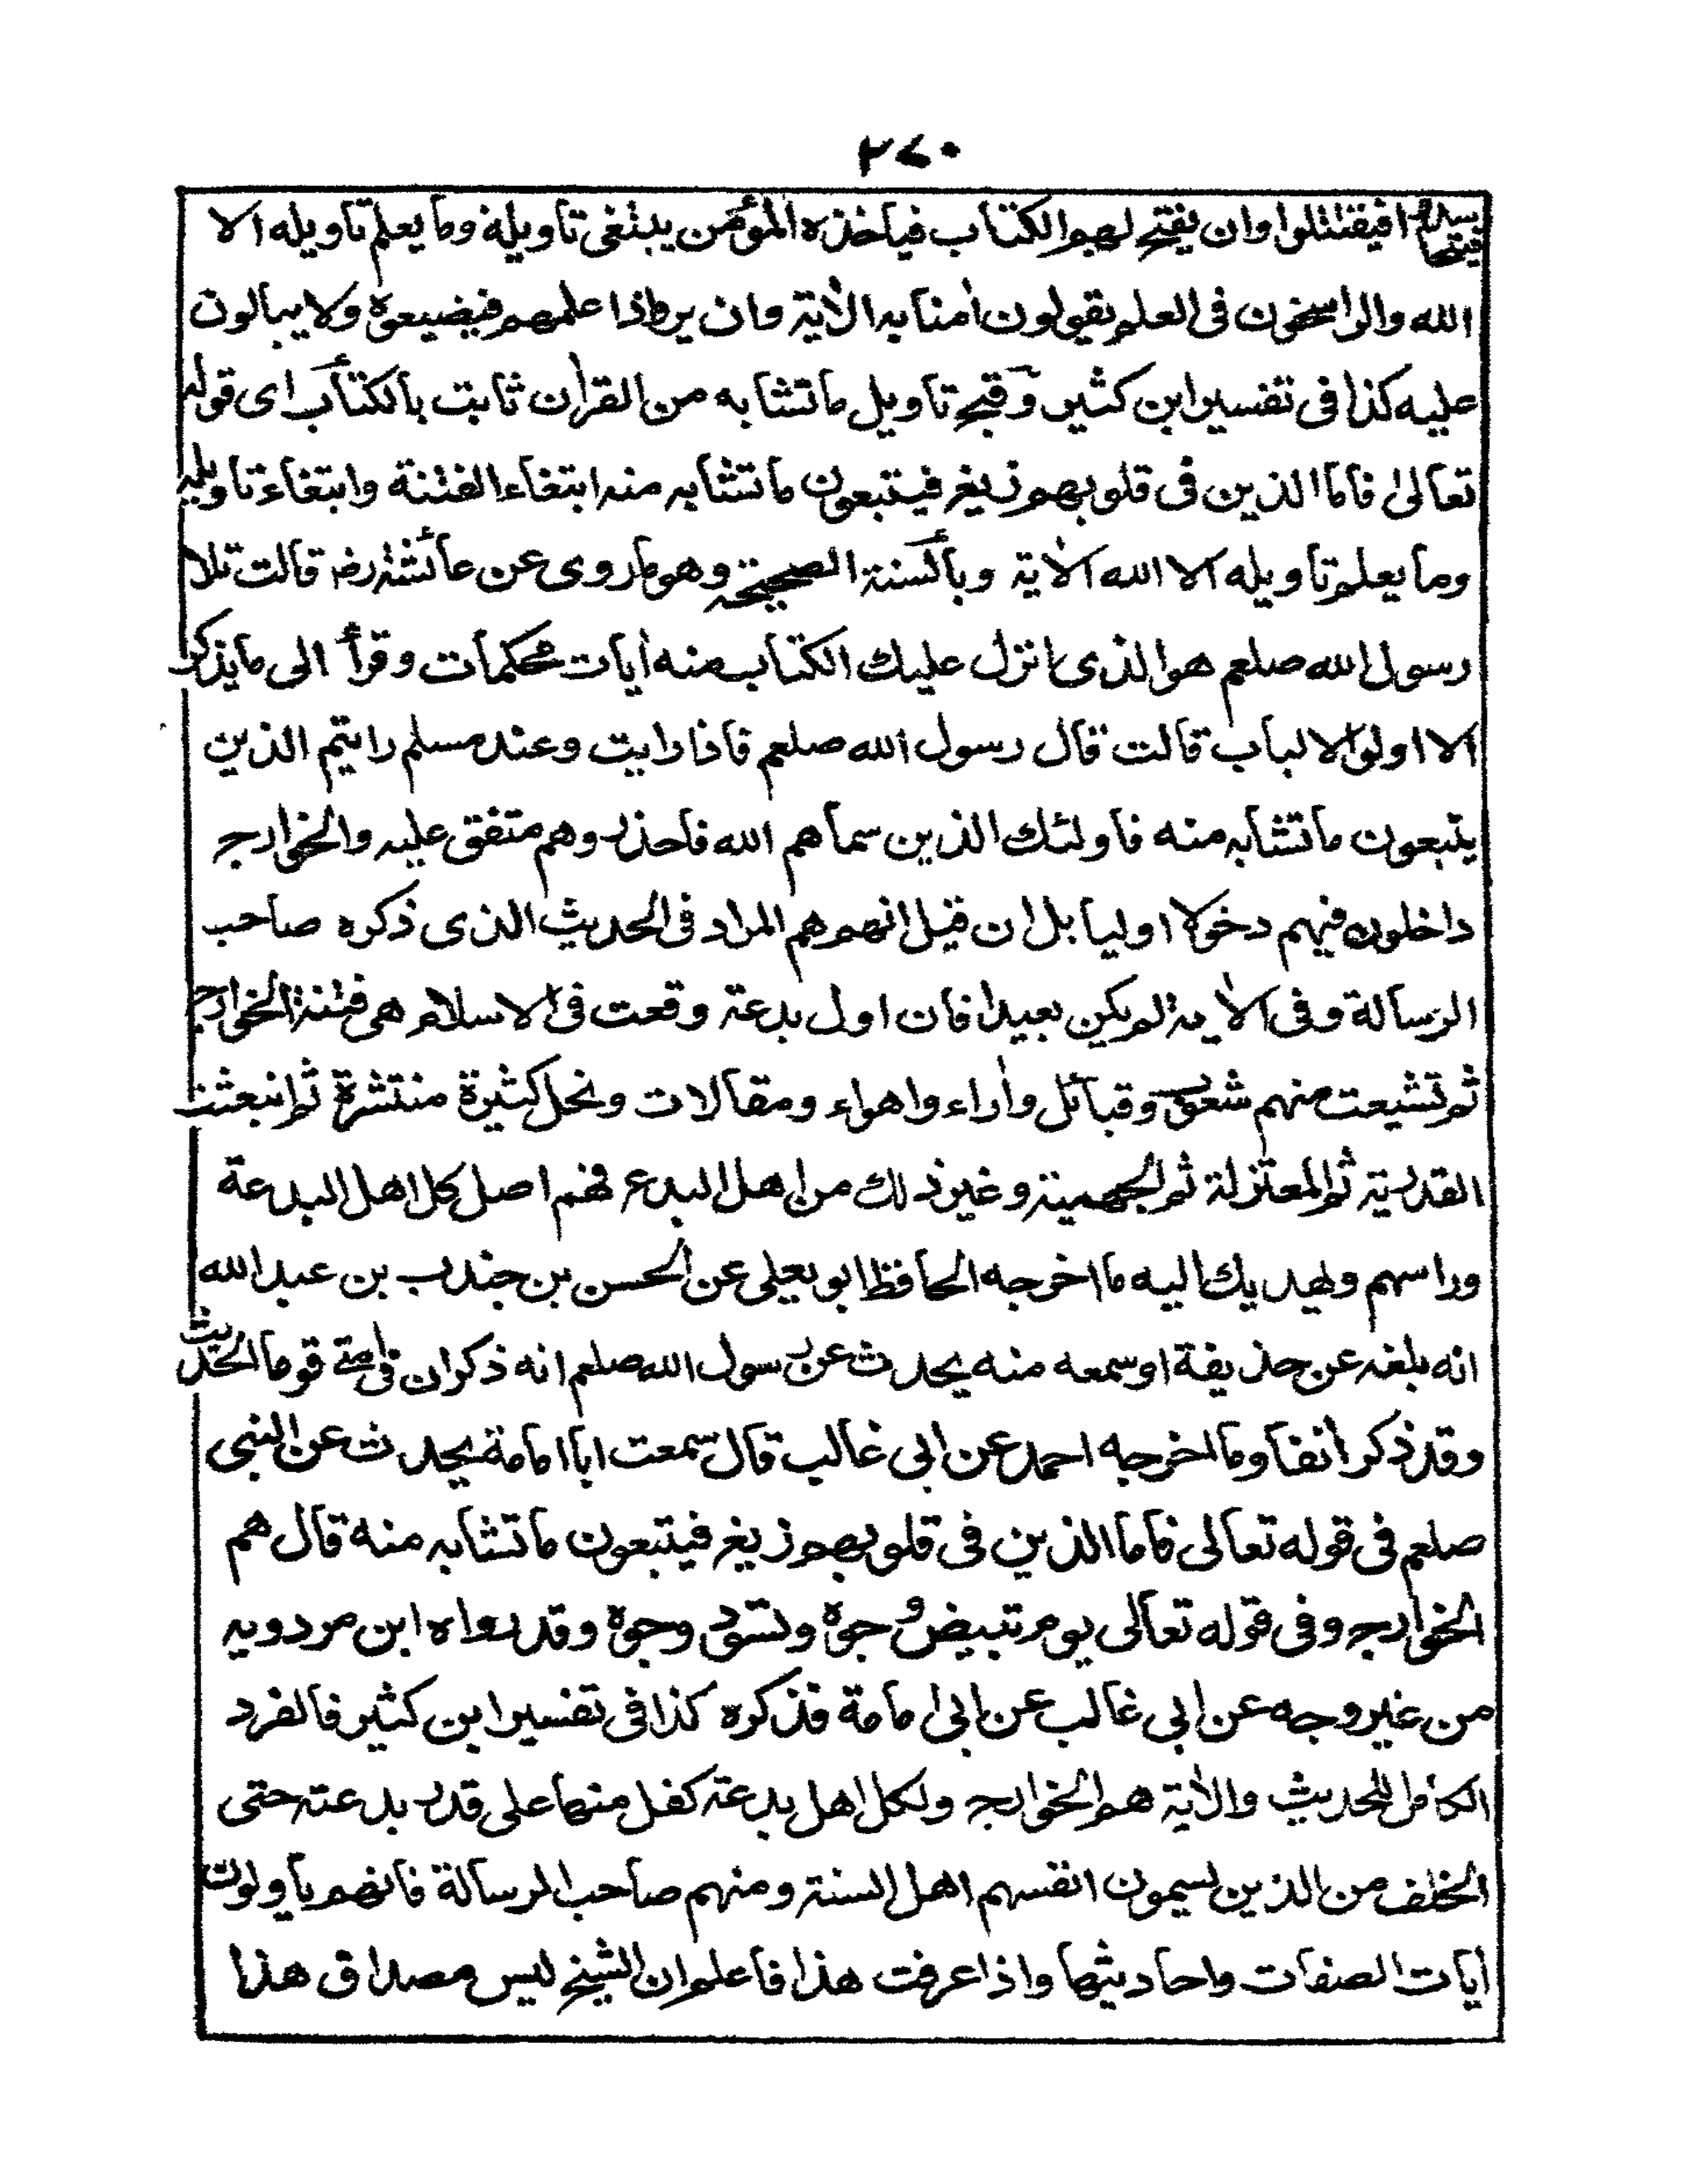 ٢٧٠
فيقتتلوا وان يفتح لهم الكتاب فياخذه المؤمن يبتغى تاويله وما يعلم تاويله الا
الله والراسخون فى العلم يقولون اٰمنا به الاٰية وان يرواذا علمهم فيضيعوه ولا يبالون
عليه كذا فى تفسير ابن كثير وقبح تاويل ما تشابه من القراٰن ثابت بالكتاب اى قوله
تعالىٰ فاما الذين فى قلوبهم زيغ فيتبعون ما تشابه منه ابتغاء الفتنة وابتغاء تاويله
وما يعلم تاويله الا الله الاٰية وبالسنة الصحيحة وهو ما روى عن عائشة رضـ قالت تلا
رسول الله صلعم هو الذى انزل عليك الكتاب منه اٰيات محكمات وقرأ الى ما يذكر
الا اولوا الالباب قالت قال رسول الله صلعم فاذا رايت وعند مسلم رايتم الذين
يتبعون ما تشابه منه فاولئك الذين سماهم الله فاحذروهم متفق عليه والخوارج
داخلون فيهم دخولا اوليا بل ان قيل انهم هم المراد فى الحديث الذى ذكره صاحب
الرسالة وفى الاٰية لم يكن بعيدا فان اول بدعة وقعت فى الاسلام هى فتنة الخوارج
ثم تشيعت منهم شعوب وقبائل واٰراء واهواء ومقالات ونحل كثيرة منتشرة ثم انبعثت
القدرية ثم المعتزلة ثم الجهمية وغير ذلك من اهل البدع فهم اصل كل اهل البدعة
وراسهم ويهديك اليه ما اخرجه الحافظ ابو يعلى عن الحسن بن جندب بن عبد الله
انه بلغه عن حذيفة او سمعه منه يحدث عن رسول الله صلعم انه ذكر ان فى امتى قوما الحديث
وقد ذكر اٰنفا وما اخرجه احمد عن ابى غالب قال سمعت ابا امامة يحدث عن النبى
صلعم فى قوله تعالى فاما الذين فى قلوبهم زيغ فيتبعون ما تشابه منه قال هم
الخوارج وفى قوله تعالى يوم تبيض وجوه وتسود وجوه وقد رواه ابن مردويه
من غير وجه عن ابى غالب عن ابى امامة فذكره كذا فى تفسير ابن كثير فالفرد
الكامل للحديث والاٰية هم الخوارج ولكل اهل بدعة كفل منها على قدر بدعته حتى
الخلف من الذين يسمون انفسهم اهل السنة ومنهم صاحب الرسالة فانهم ياولون
اٰيات الصفات واحاديثها واذا عرفت هذا فاعلم ان الشيخ ليس مصداق هذا